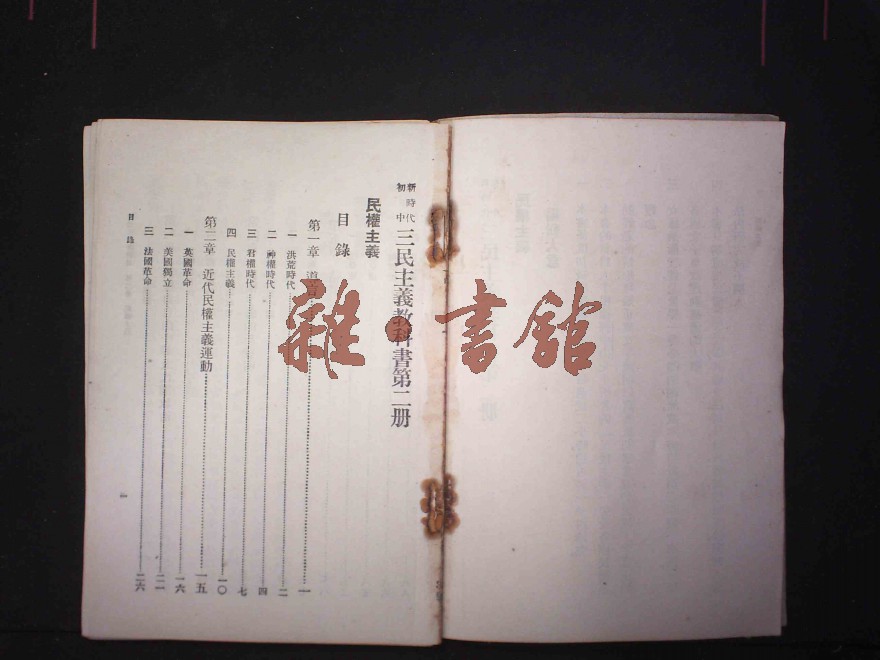 新時代
初中
三民主義教科書第二册
民權主義
目錄
第一章 導言……一
一 洪荒時代……二
二 神權時代……四
三 君權時代……七
四 民權主義……一〇
第二章 近代民權主義運動……一五
一 英國革命……一六
二 美國獨立……二一
三 法國革命……二六
目錄
一
雜·書館